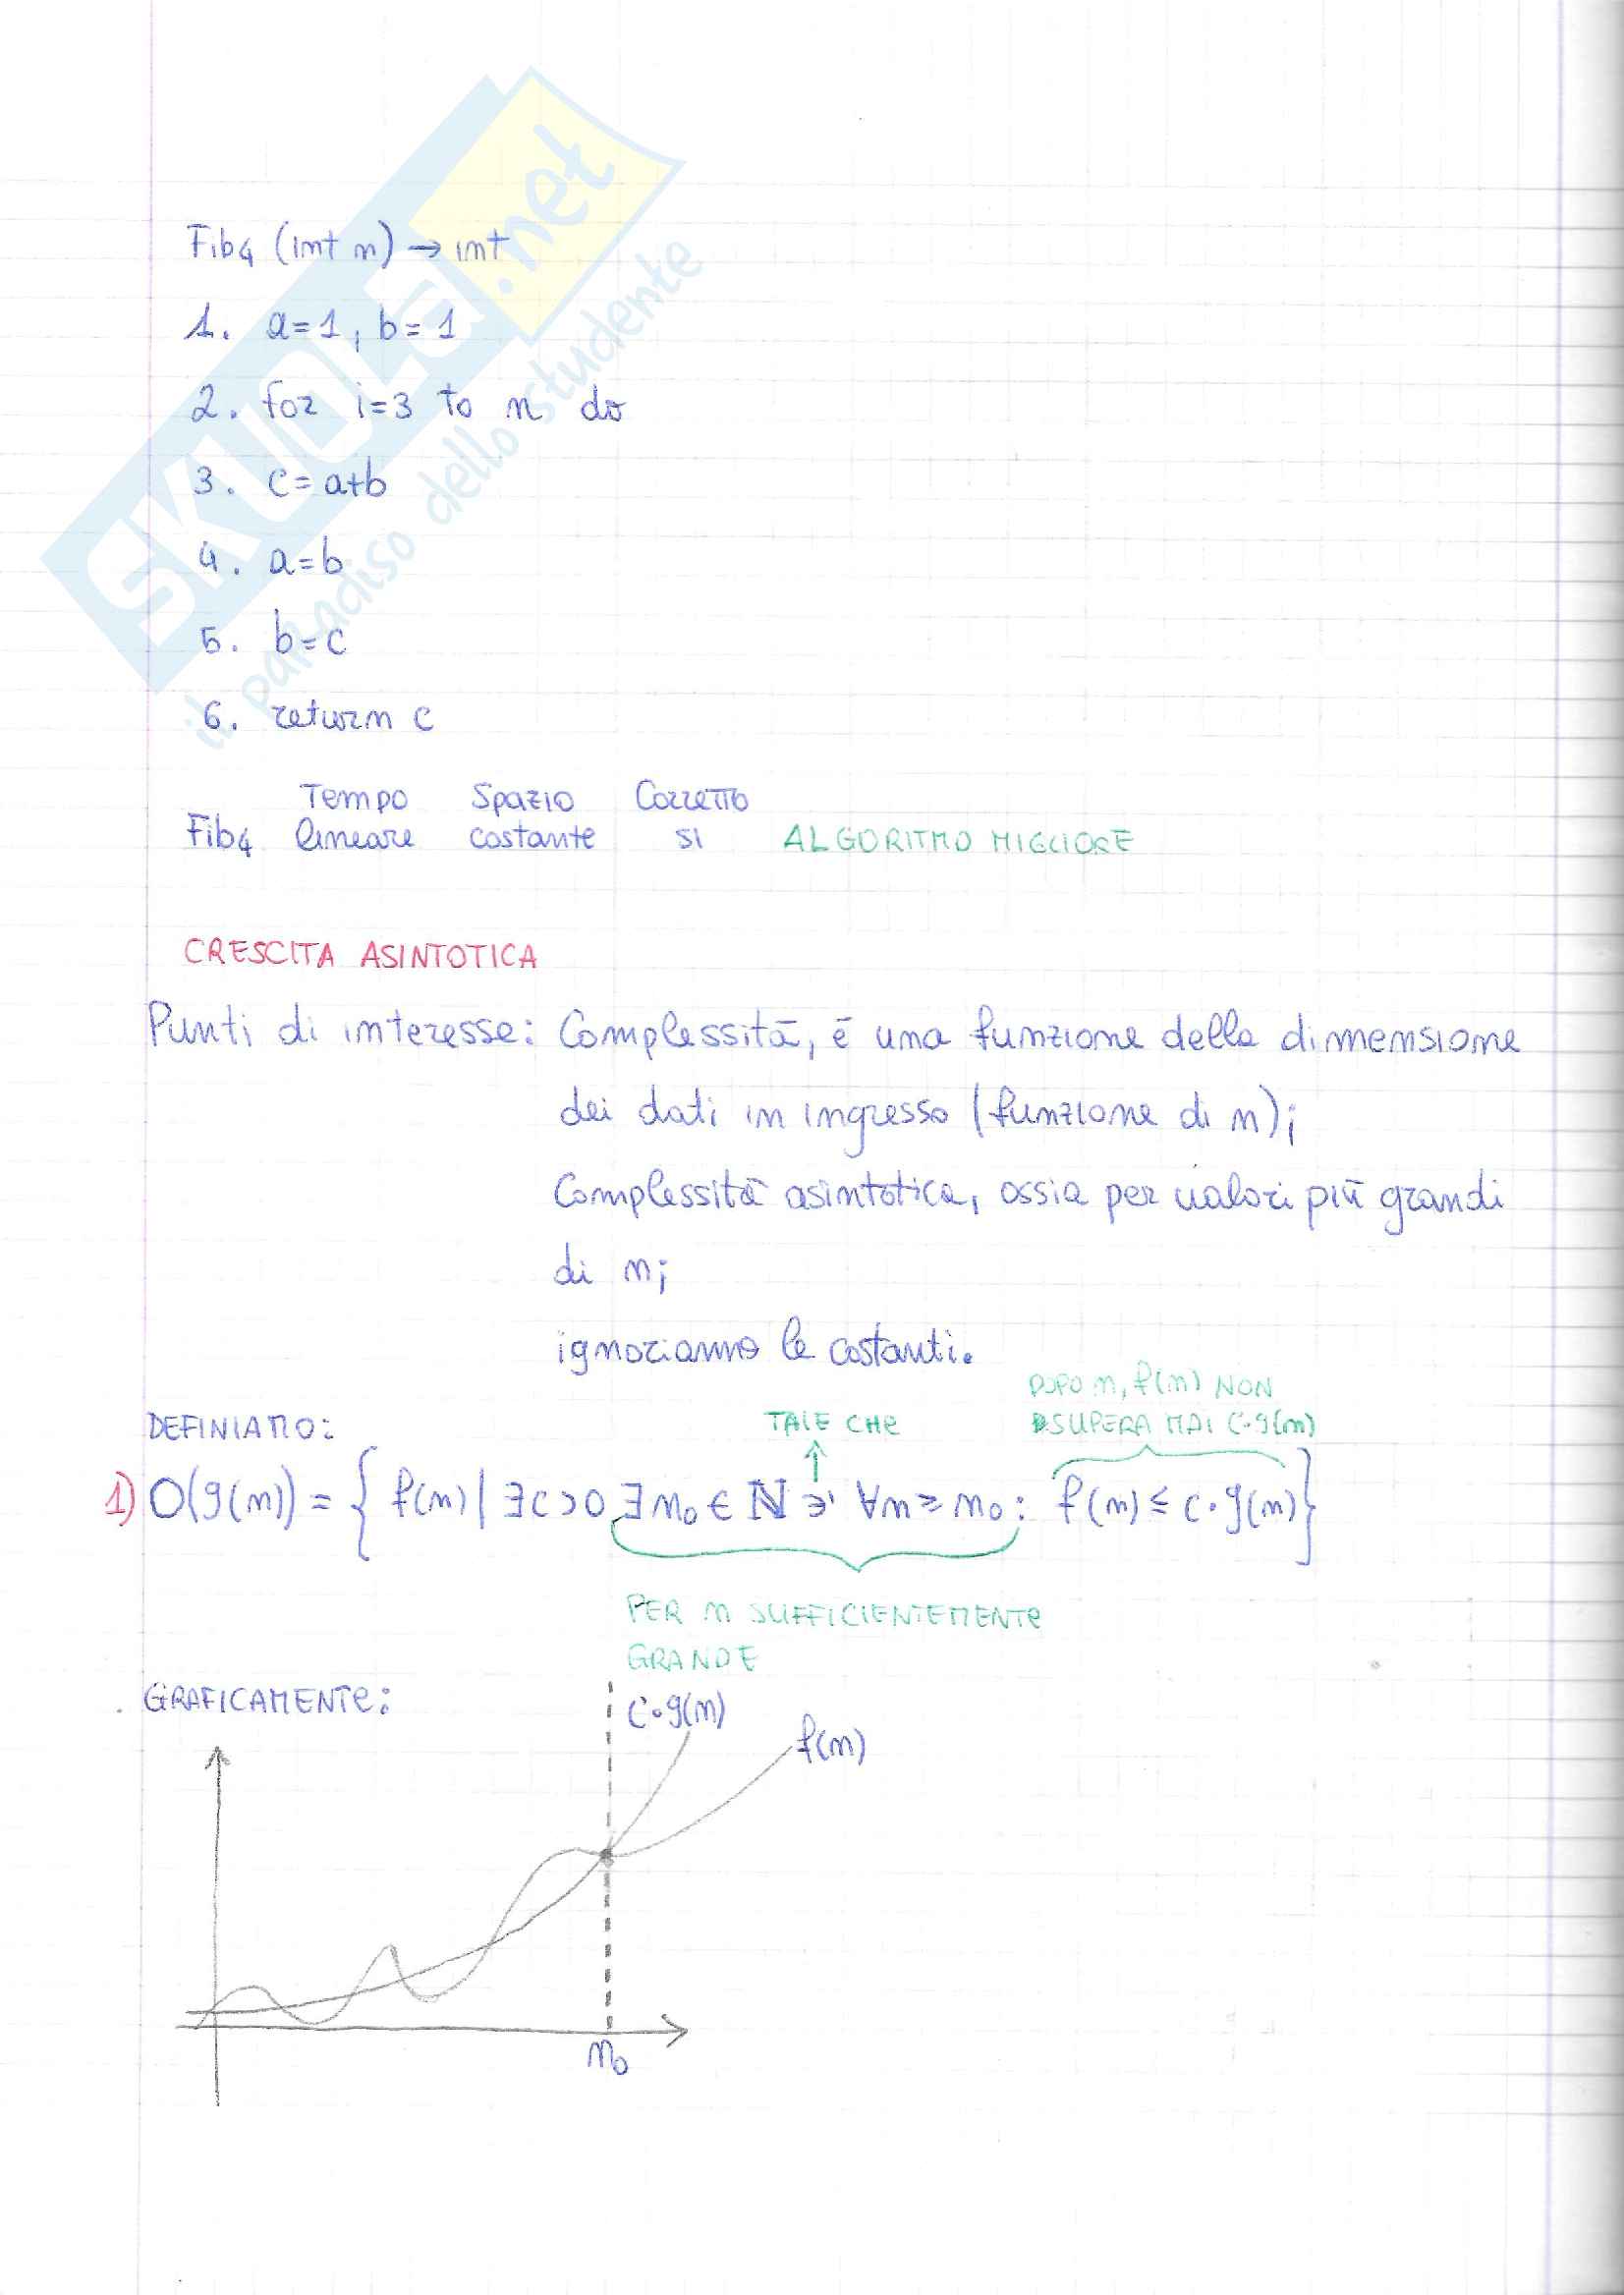 SKUOLA.net
il paradiso dello studente
Fib4 (int n) → int
1. a=1, b=1
2. for i=3 to n do
3. c=a+b
4. a=b
5. b=c
6. return c
Tempo Spazio Corretto
Fib4 lineare costante SI ALGORITMO MIGLIORE
CRESCITA ASINTOTICA
Punti di interesse: Complessità, è una funzione della dimensione
dei dati in ingresso (funzione di n);
Complessità asintotica, ossia per valori più grandi
di n;
ignoriamo le costanti.
DOPO n, f(n) NON
DEFINIAMO: TALE CHE SUPERA MAI C·g(n)
1) O(g(n)) = { f(n) | ∃c>0 ∃n₀ ∈ ℕ ∋' ∀n ≥ n₀ : f(n) ≤ c·g(n) }
PER n SUFFICIENTEMENTE
GRANDE
GRAFICAMENTE: C·g(n)
f(n)
n₀